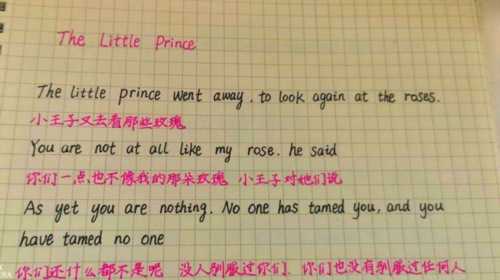 The Little Prince
The little prince went away, to look again at the roses.
小王子又去看那些玫瑰
You are not at all like my rose. he said
你们一点也不像我的那朵玫瑰 小王子对她们说
As yet you are nothing. No one has tamed you, and you
have tamed no one
你们还什么都不是呢 没人驯服过你们 你们也没有驯服过任何人